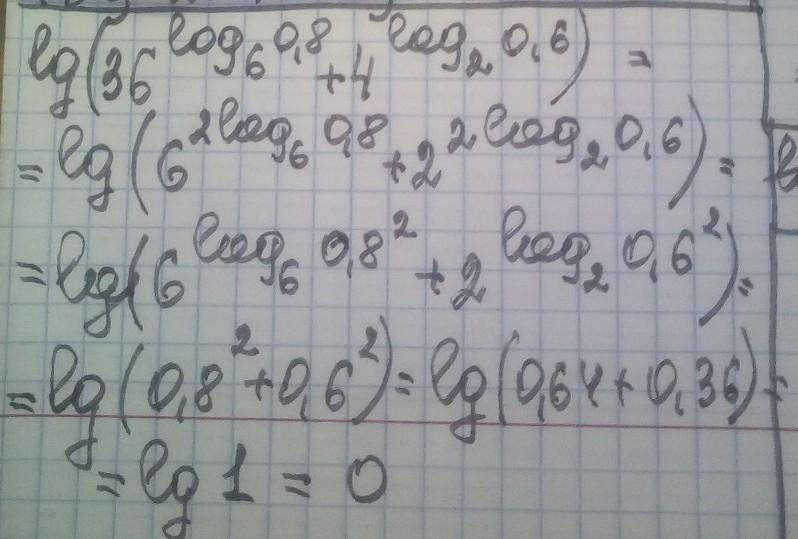 lg(36^log₆0,8 + 4^log₂0,6) =
= lg(6^2log₆0,8 + 2^2log₂0,6) =
= lg(6^log₆0,8² + 2^log₂0,6²) =
= lg(0,8² + 0,6²) = lg(0,64 + 0,36) =
= lg 1 = 0